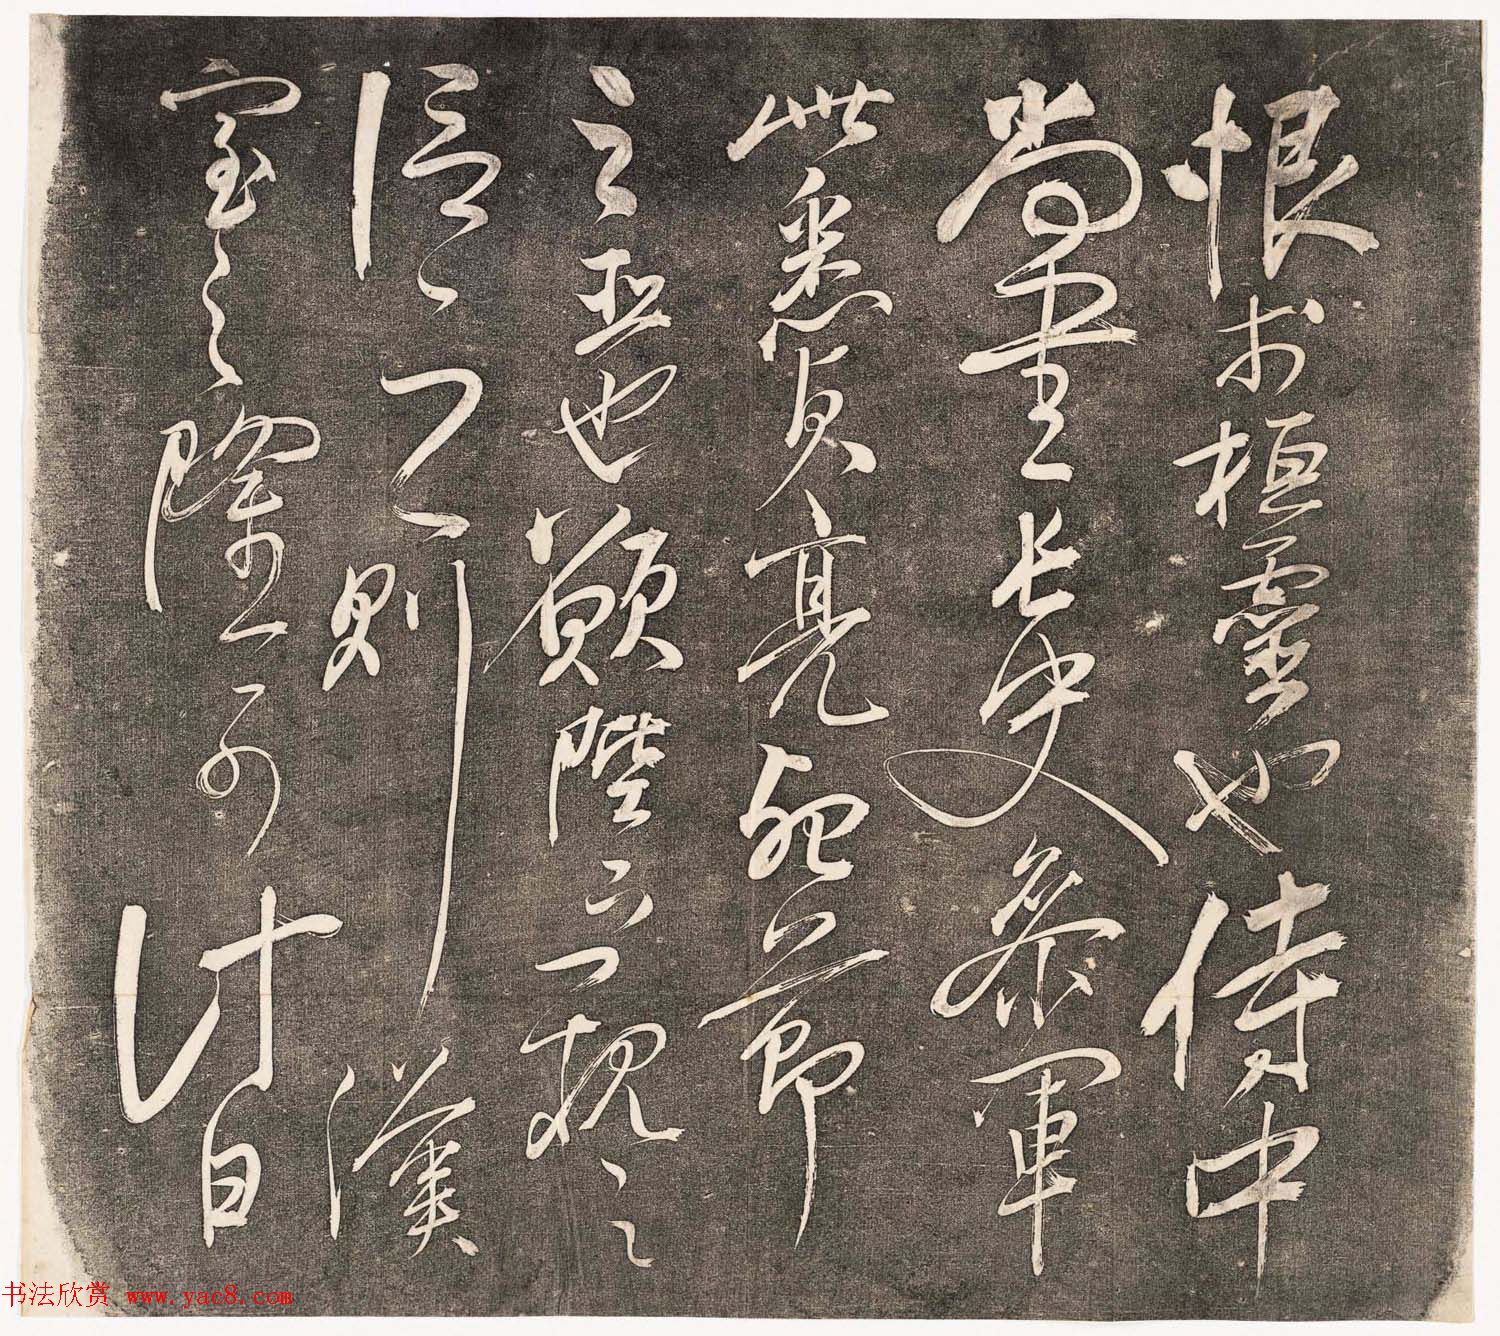 恨於桓靈也侍中
尚書長史參軍
此悉貞亮死節
之臣也願陛下親之
信之則漢
室之隆可計日
书法欣赏 www.yac8.com